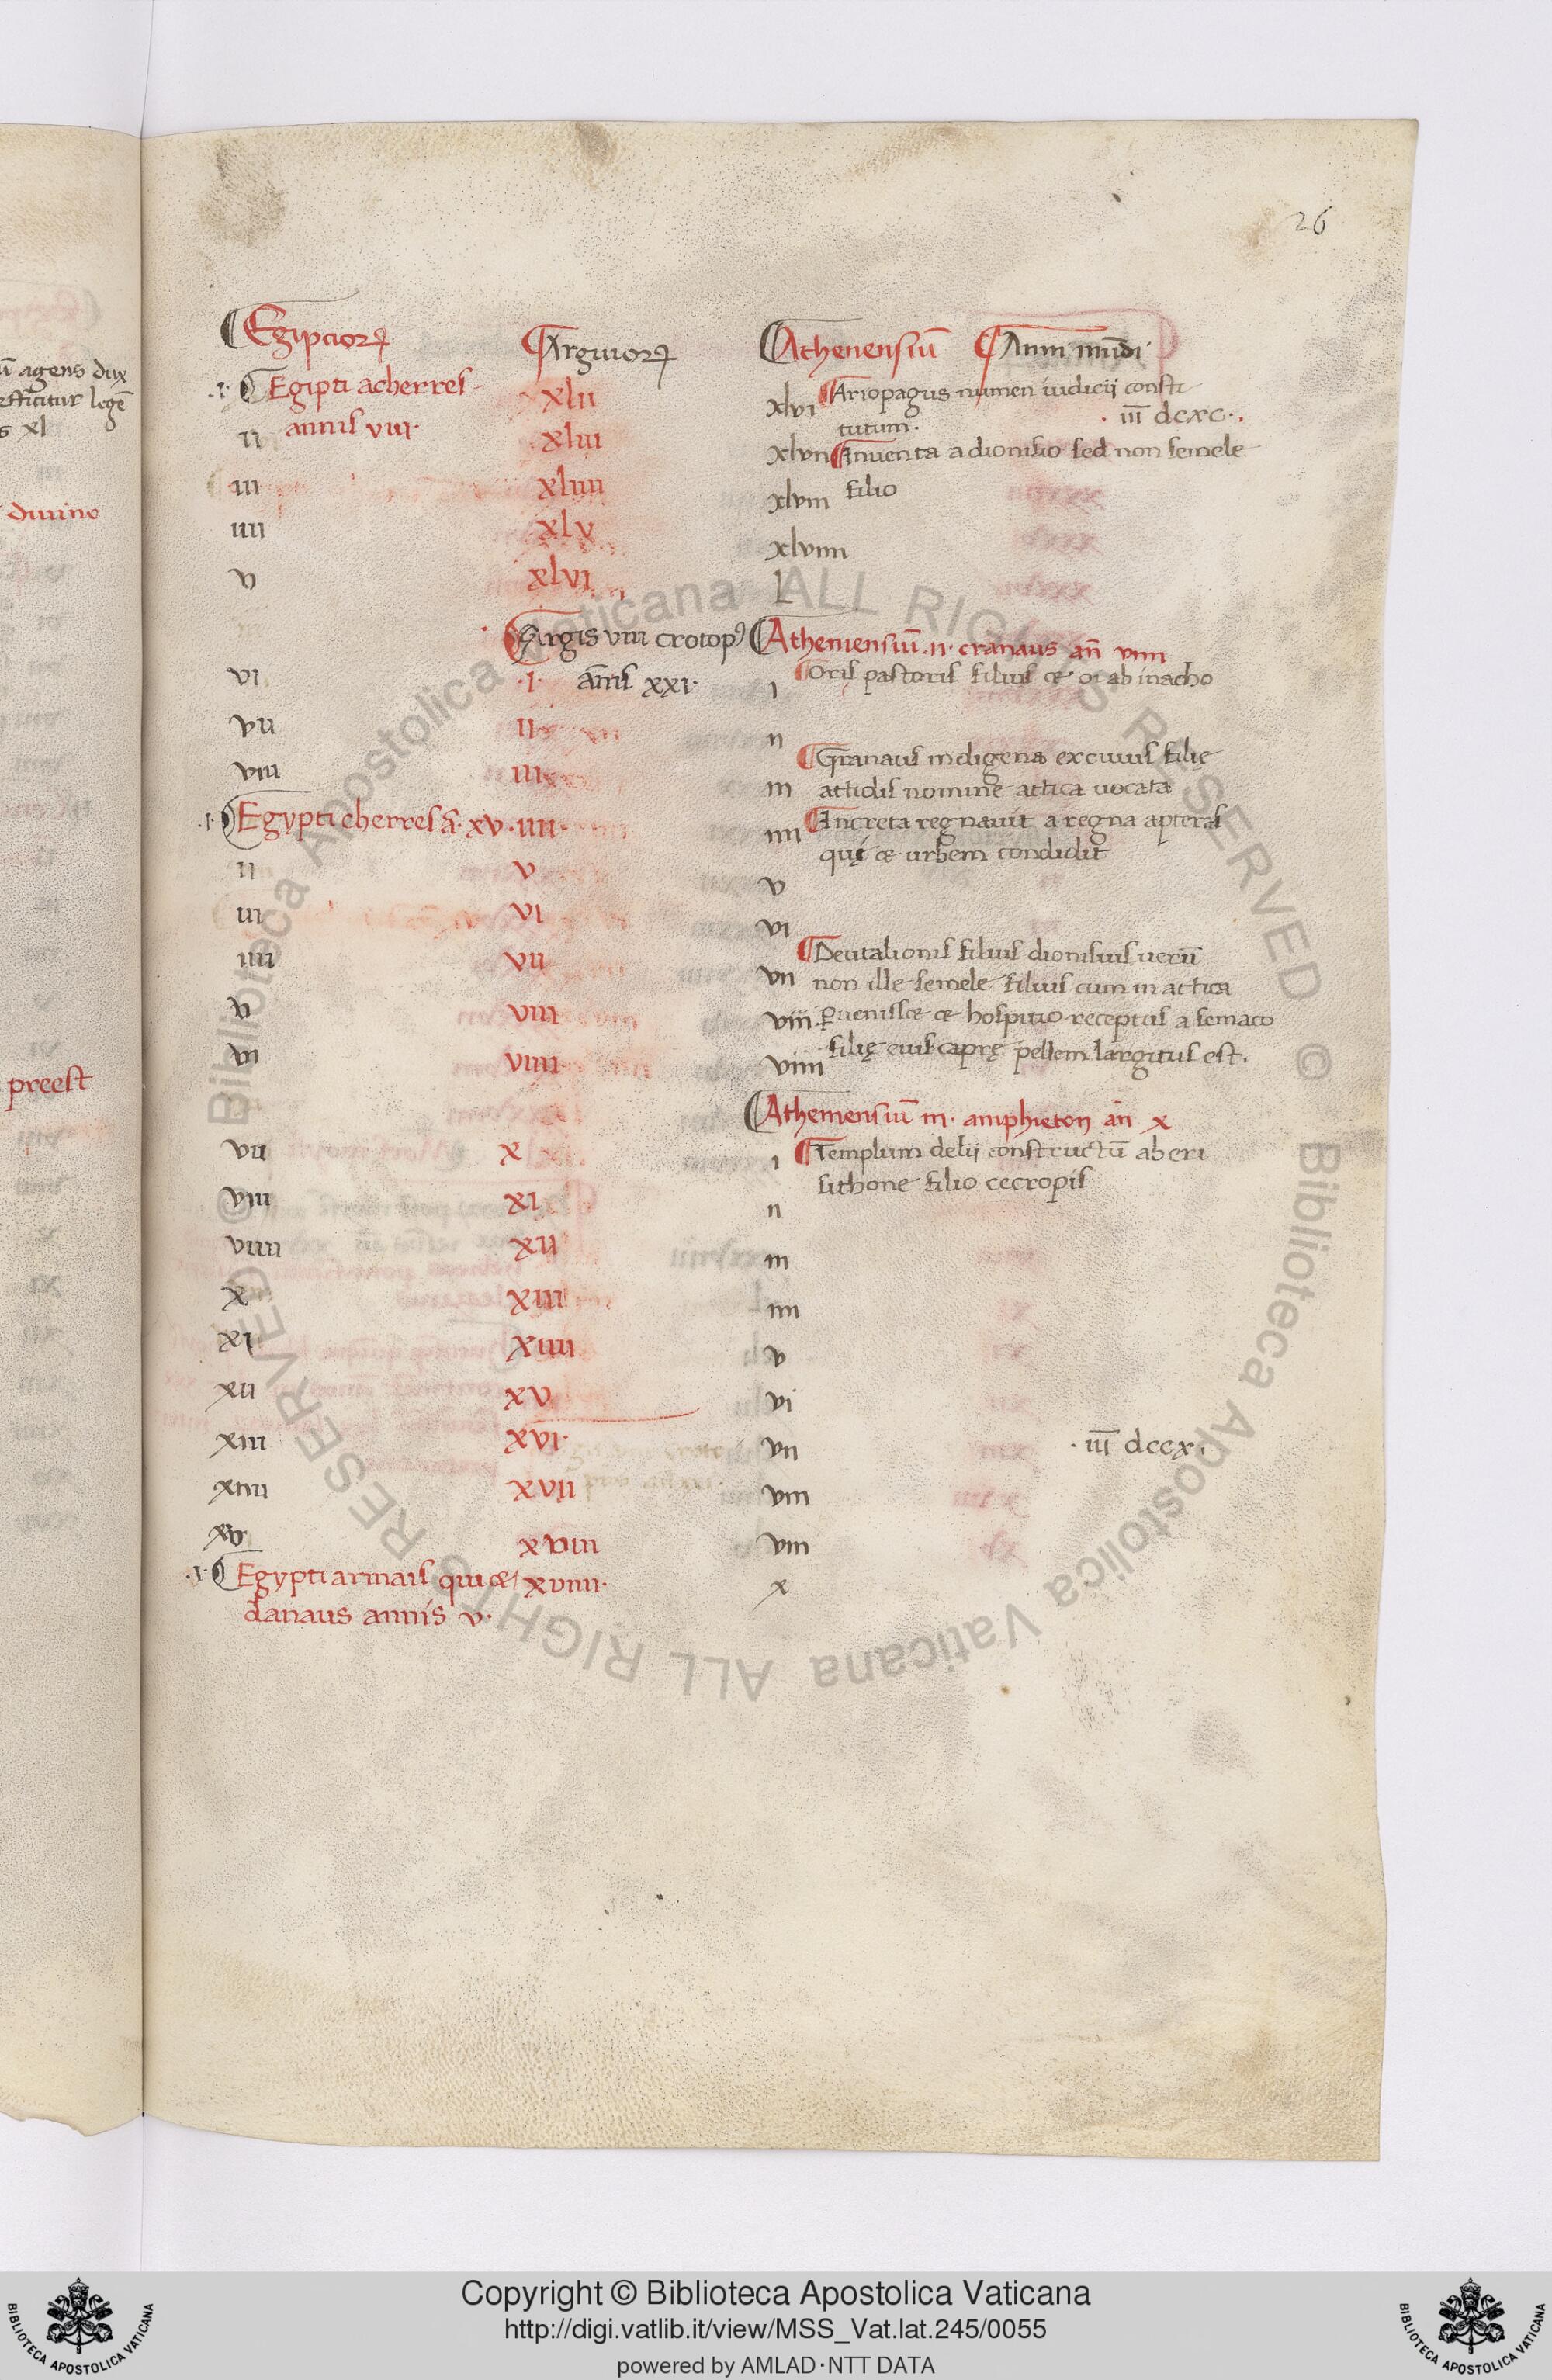 26
Egipcioꝝ Arguioꝝ Atheniensiū Anni mūdi
·i· Egipti acherres xlii xlvi Ariopagus numen iudicij consti
ii annis viii· xliii tutum· · iii̅ dcxc·.
xlvii Inuenta a dionisio sed non semele
iii xliiii xlviii filio
iiii xlv xlviiii
v xlvi L
Argis viii crotopꝰ Atheniensiū·ii· cranaus an̄ viiii
vi ·i· an̄is xxi· i Oris pastoris filius ab inacho
vii ii ii
Granaus indigena excuius filię
viii iii iii attidis nomine attica uocata
·i· Egypti cherres ā· xv· iiii· iiii Increta regnauit a regna apteras
quę urbem condidit
ii v v
iii vi vi
Deutalionis filius dionisius uerū
iiii vii vii non ille semele filius cum in attica
v viii viii ꝑuenisset hospitio receptus a semaco
vi viiii viiii filię eius caprę pellem largitus est.
Atheniensiū iii· amphieton an̄ x
vii x i Templum delij constructū ab eri
sithone filio cecropis
viii xi ii
viiii xii iii
x xiii iiii
xi xiiii v
xii xv vi
xiii xvi· vii · iii̅ dccx·
xiiii xvii viii
xv xviii viiii
·i· Egypti armais qui xviiii· x
danaus annis v·
ū agens dux
efficitur legē
s xl
diuino
preest
© Biblioteca Apostolica Vaticana ALL RIGHTS RESERVED © Biblioteca Apostolica Vaticana ALL RIGHTS RESERVED
Copyright © Biblioteca Apostolica Vaticana
http://digi.vatlib.it/view/MSS_Vat.lat.245/0055
powered by AMLAD·NTT DATA
BIBLIOTECA APOSTOLICA VATICANA
BIBLIOTECA APOSTOLICA VATICANA